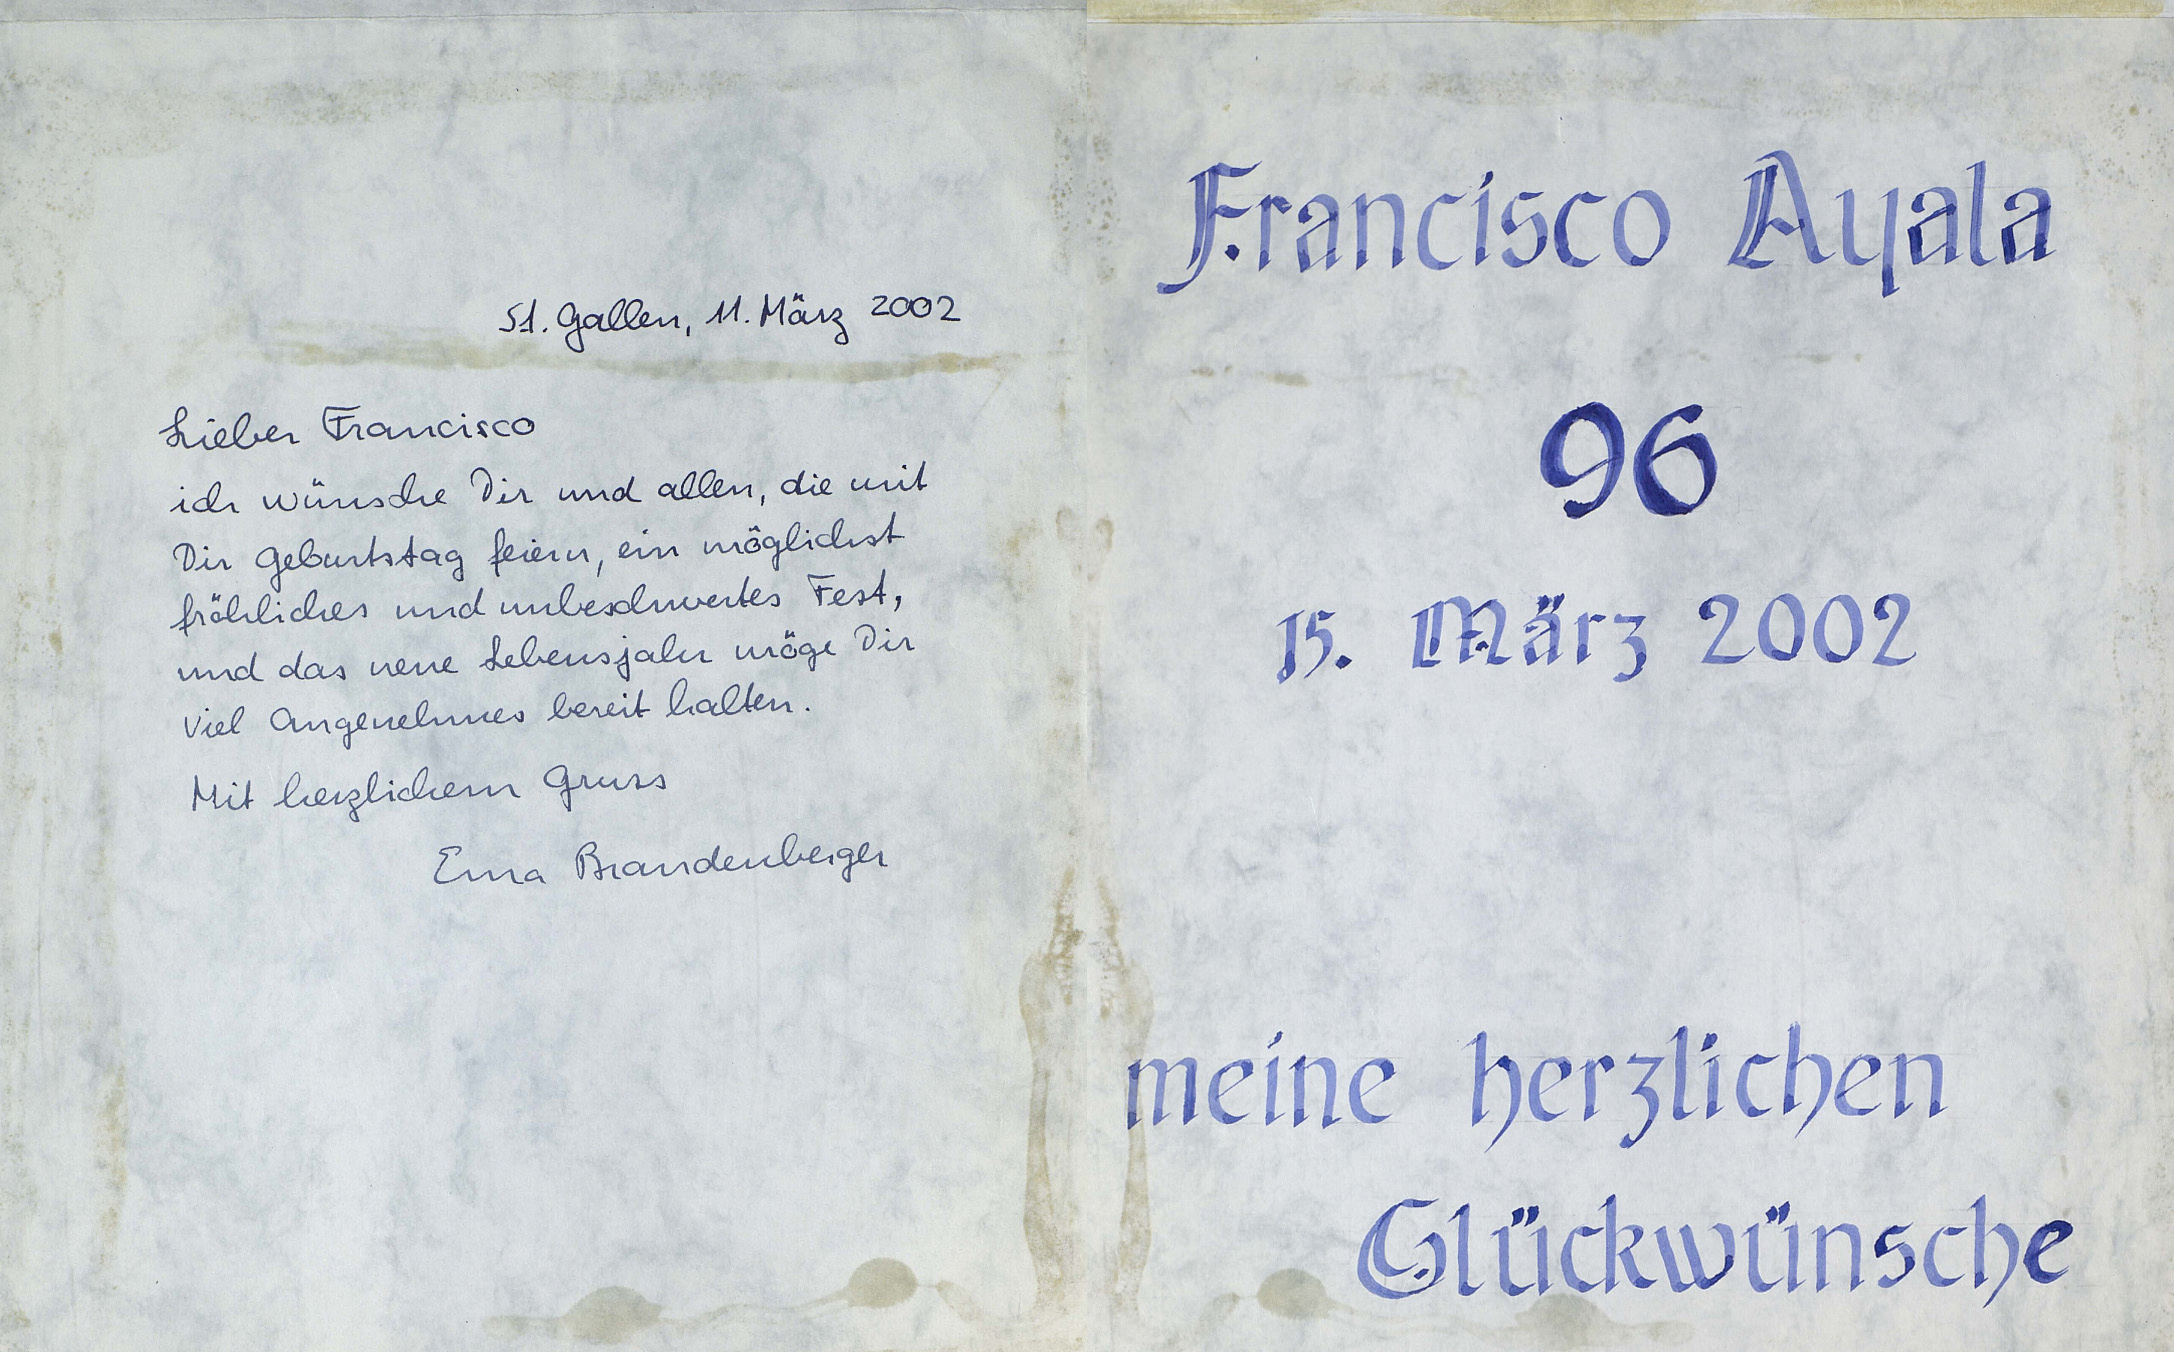 St. Gallen, 11. März 2002
Lieber Francisco
ich wünsche Dir und allen, die mit
Dir Geburtstag feiern, ein möglichst
fröhliches und unbeschwertes Fest,
und das neue Lebensjahr möge Dir
viel Angenehmes bereit halten.
Mit herzlichem Gruss
Erna Brandenberger
Francisco Ayala
96
15. März 2002
meine herzlichen
Glückwünsche